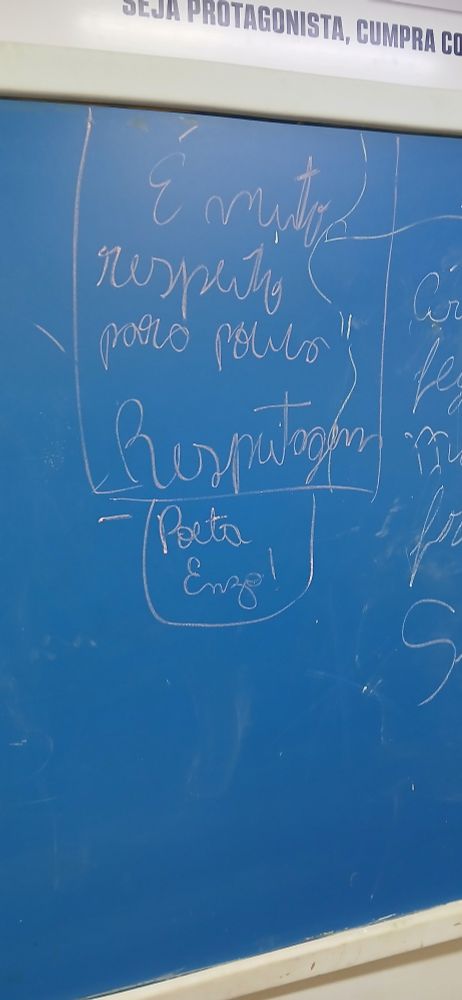 SEJA PROTAGONISTA, CUMPRA CO
É muito
respeito
para pouca"
Respeitagem
- Poeta
Enzo!